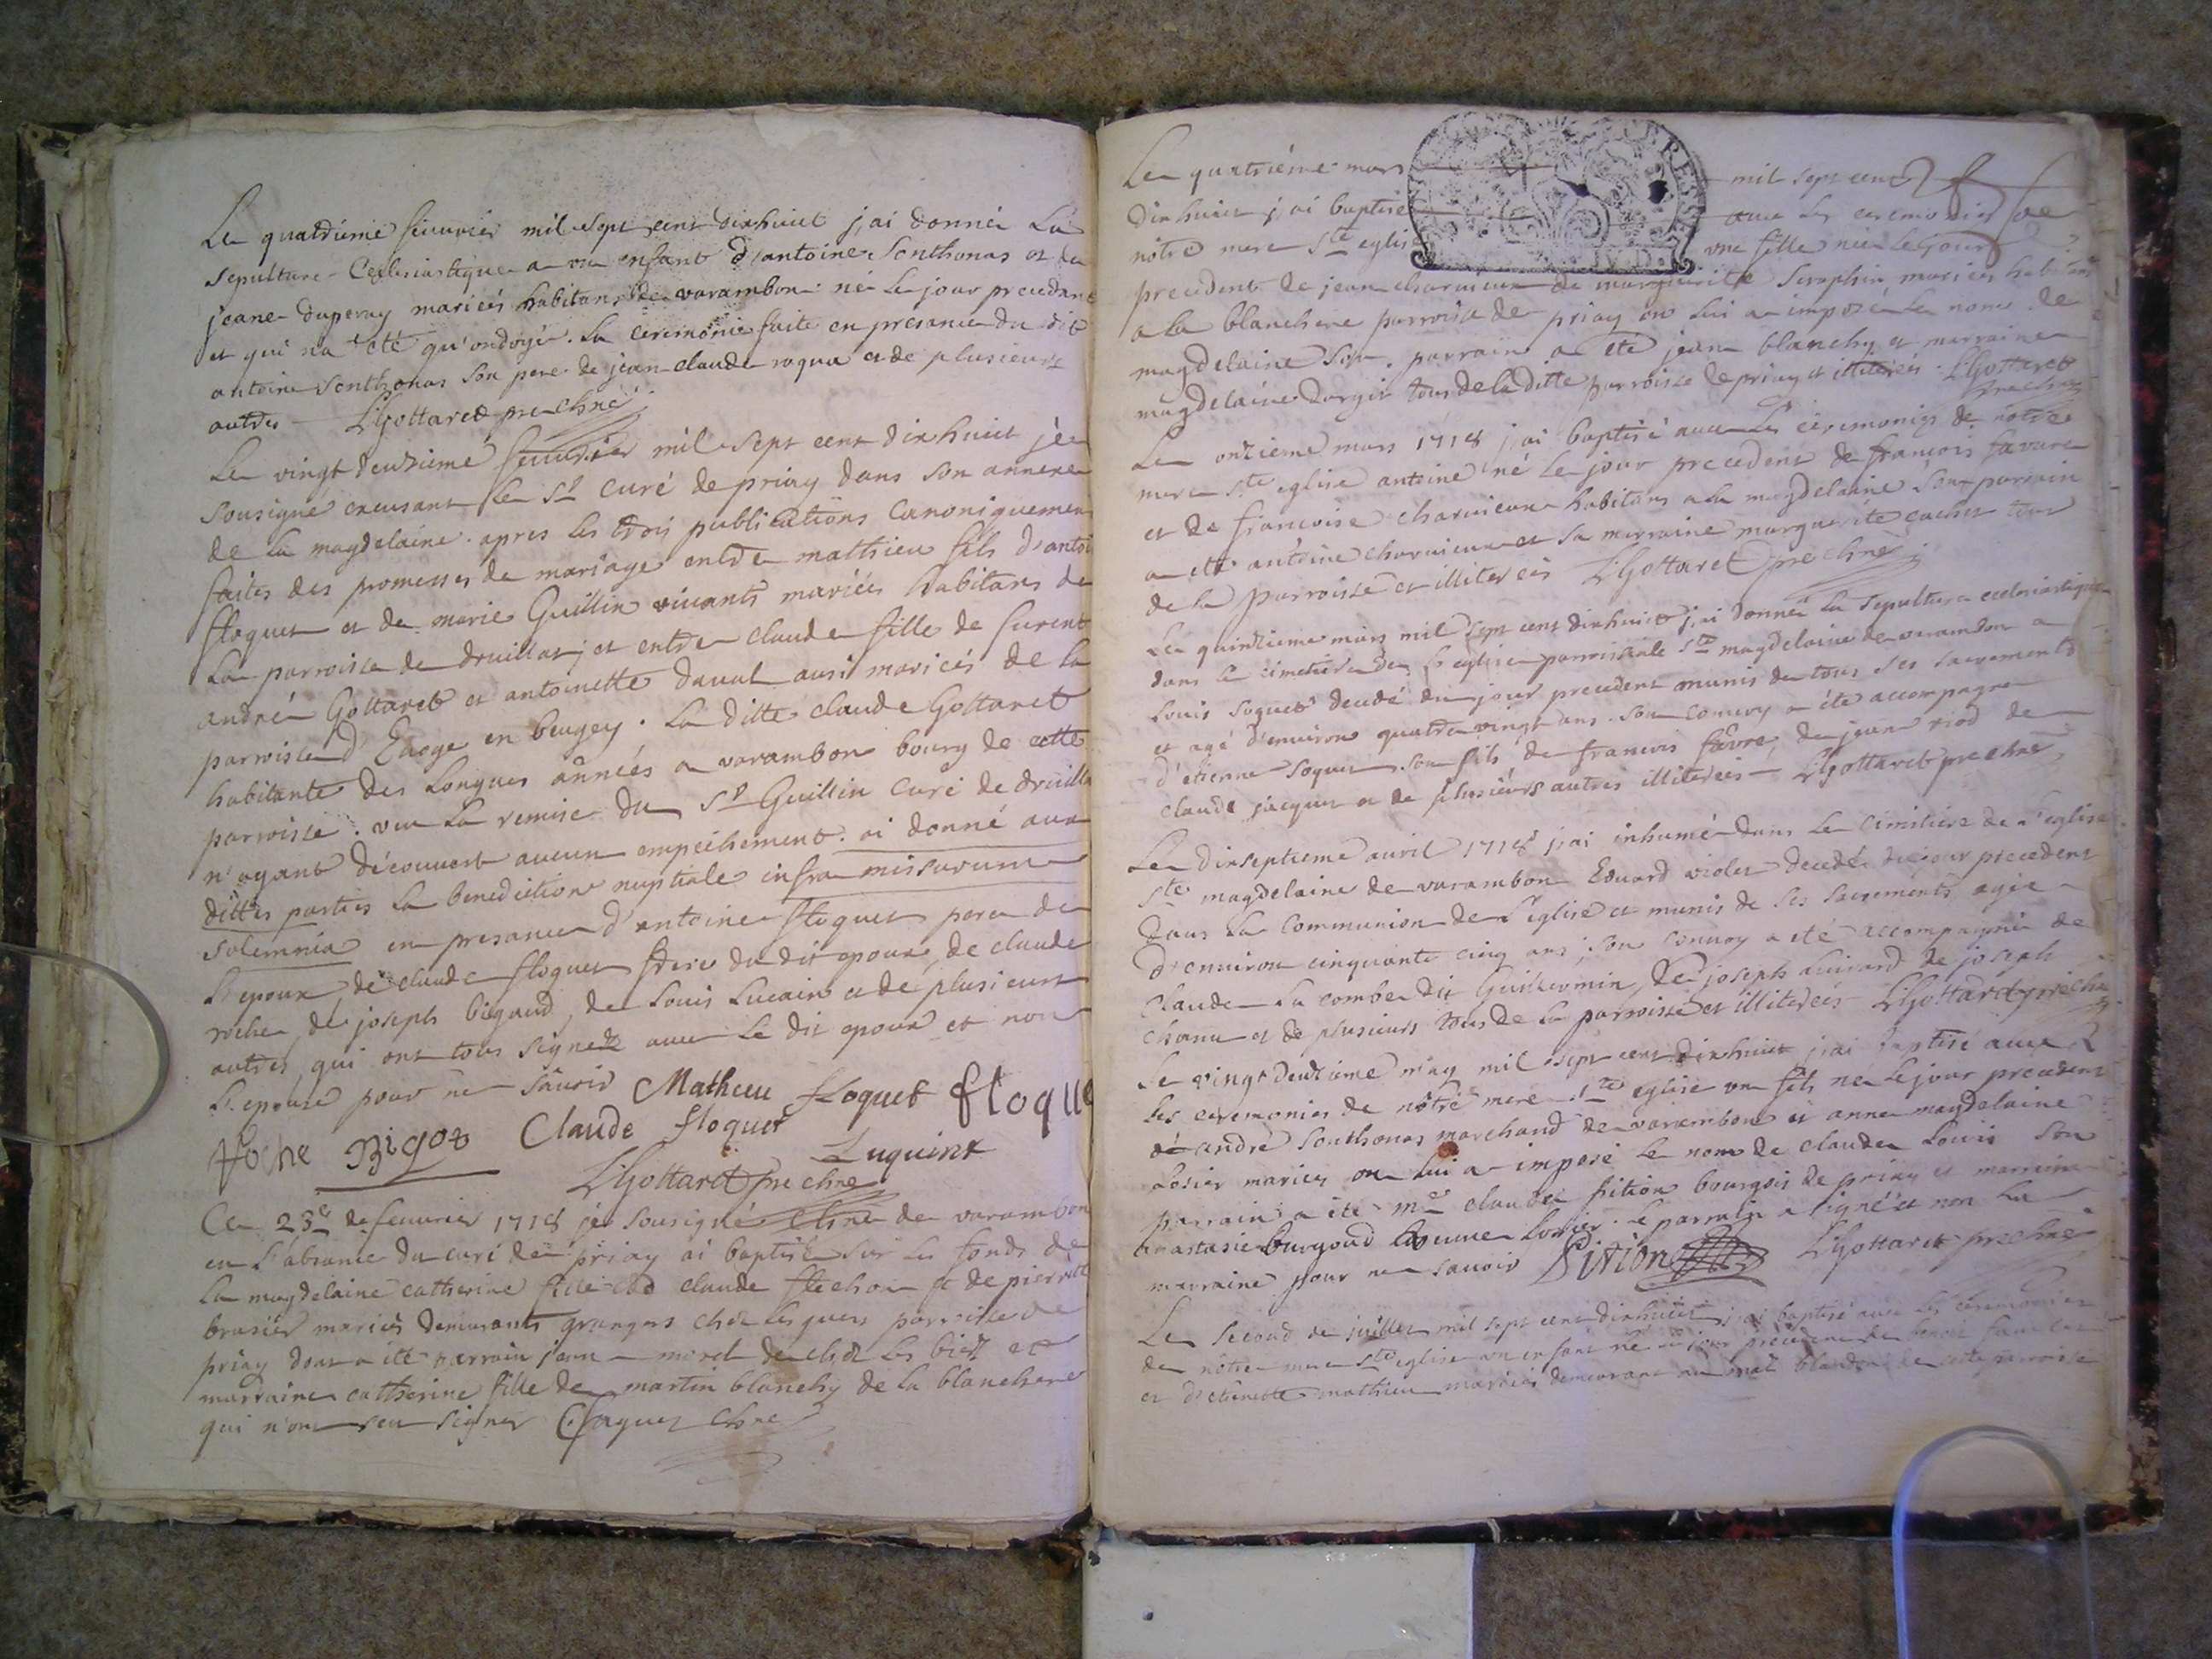 Le quatrieme feuvrier mil sept cent dixhuict j'ai donné La
sepulture Ecclesiastique a un enfant d'antoine Sonthonas et de
jeane duperay mariés habitans de varambon né le jour precedant
et qui n'a été qu'ondoyé. La ceremonie faite en presance du dit
antoine Sonthonas son pere de jean claude raqua et de plusieurs
autres LGottaret pre chne
Le vingt deuxieme feuvrier mil sept cent dixhuict je
sousigné excusant le Sr curé de priay dans son annexe
de la magdelaine. apres les trois publications canoniquement
faites des promesses de mariage entre mathieu fils d'antoi
floquet et de marie Guillin vivants mariés habitans de
La parroisse de druillat; et entre claude fille de furent
andré Gottaret et antoinette daval aussi mariés de la
parroisse d' en beugey. La ditte claude Gottaret
habitante des Longues années a varambon bourg de cette
parroisse. veu la remise du Sr Guillin curé de druilla
n'ayant découvert aucun empeschement. ai donné aux
dittes parties la benediction nuptiale infra missarum
solemnia en presance d'antoine floquet pere de
l'epoux, de claude floquet frere du dit epoux, de claude
roche, de joseph bigaud, de Louis Lucain et de plusieurs
autres, qui ont tous signez avec le dit epoux et non
L'epouse pour ne sauoir Mathieu floquet floque
Roche Bigot Claude floquet
Luquint
LGottaret pre chne
Ce 23e de feuvrier 1718 je sousigné chne de varambon
en l'absance du curé de priay ai baptisé sur les fonds de
La magdelaine catherine fille de claude flechon et de pierrette
brasier mariés demurants grangers chez parroisse de
priay dont a été parrain jean morel de chez les biez et
marraine catherine fille de martin blanchy de la blanchere
qui n'ont seu signer chne
Le quatrieme mars mil sept cent
dixhuict j'ai baptisé avec les ceremonies de
nôtre mere Ste eglise une fille née le jour
precedent de jean charvieux de marguerite Seraphin mariés habitans
a la blanchere parroisse de priay on lui a imposé le nom de
magdelaine son parrain a été jean blanchy et marraine
magdelaine Dorgit tous de la ditte parroisse de priay et illiterés. LGottaret
pre chne
Le onzieme mars 1718 j'ai baptisé avec les ceremonies de nôtre
mere Ste eglise antoine né le jour precedent de françois favare
et de francoise charvieux habitans a la magdelaine son parrain
a été antoine charvieux et sa marraine marguerite tous
de la parroisse et illiterés LGottaret pre chne
Le quinzieme mars mil sept cent dixhuict j'ai donné la sepulture ecclesiastique
dans le cimetiere de l'eglise parroissiale Ste magdelaine de varambon a
Louis Soquet decedé du jour precedent munis de tous ses sacrements
et agé d'environ quatre vingt ans. son convoy a été accompagné
d'etienne Soquet son fils de francois favre, de jean riod de
claude jacquet et de plusieurs autres illiterés LGottaret pre chne
Le dixseptieme avril 1718 j'ai inhumé dans le cimitiere de l'eglise
Ste magdelaine de varambon Eduard violet decedé du jour precedent
dans la communion de l'eglise et munis de ses sacrements agé
d'environ cinquante cinq ans; son convoy a été accompagné de
claude La combe dit Guillermin, de joseph de joseph
chanu et de plusieurs tous de la parroisse et illiterés LGottaret pre chne
Le vingt deuxieme may mil sept cent dixhuict j'ai baptisé avec
les ceremonies de nôtre mere Ste eglise un fils né le jour precedent
de andré Sonthonas marchand de varambon et anne magdelaine
Losier mariés on lui a imposé le nom de claude Louis son
parrain a été mre claude pition bourgois de priay et marraine
anastasie burgoud Losier. Le parrain a signé et non la
marraine pour ne sauoir Pition LGottaret pre chne
Le second de juillet mil sept cent dixhuict j'ai baptisé avec les ceremonies
de nôtre mere Ste eglise un enfant né du jour precedent de benoit
et d'etiennette mathieu mariés demeurant au de cette parroisse